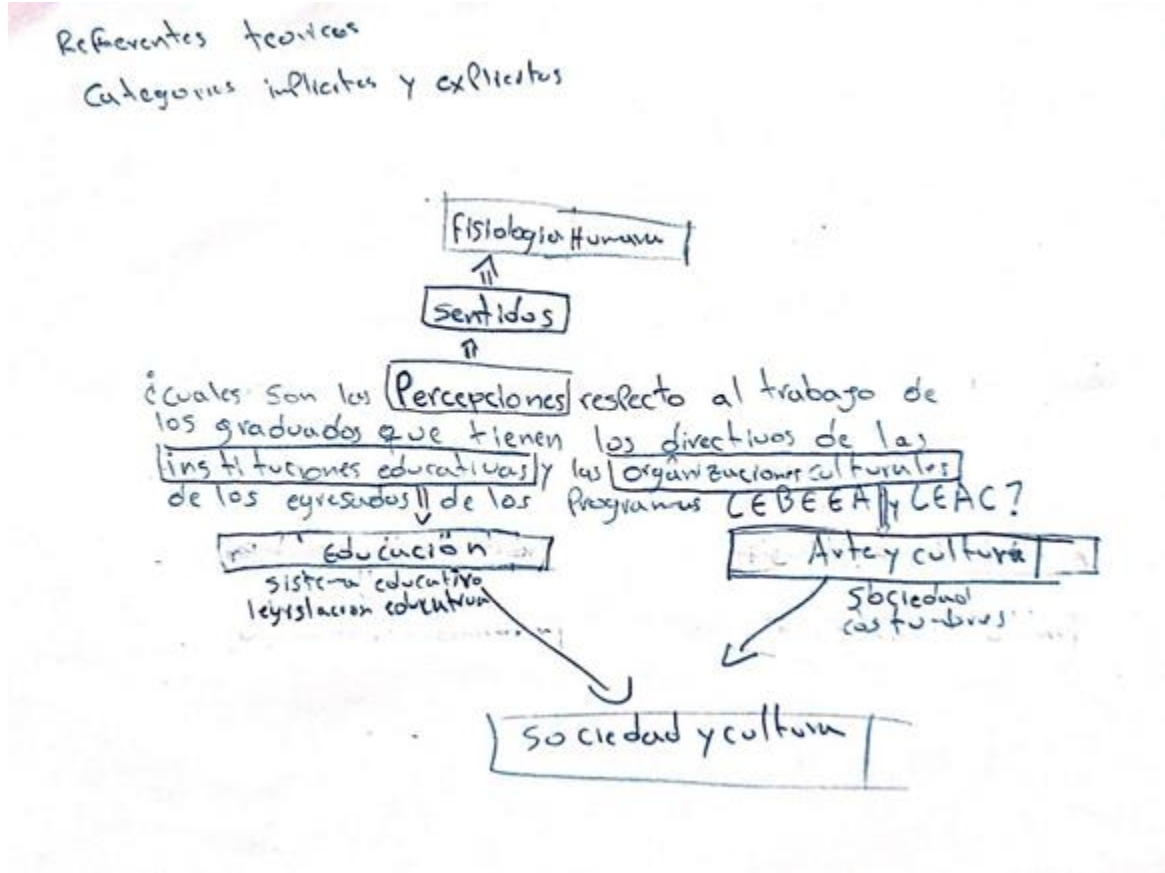 Refeerentes teoricos
Categorias implicitas y explicitas
fisiologia Humana
Sentidos
¿cuales son las Percepciones respecto al trabago de
los graduados que tienen los directivos de las
instituciones educativas y las organizaciones culturales
de los egresados de los Programas LEBEEA y LEAC?
Educación
Arte y cultura
sistema educativo
legislacion educativa
Sociedad
costumbres
Sociedad y cultura